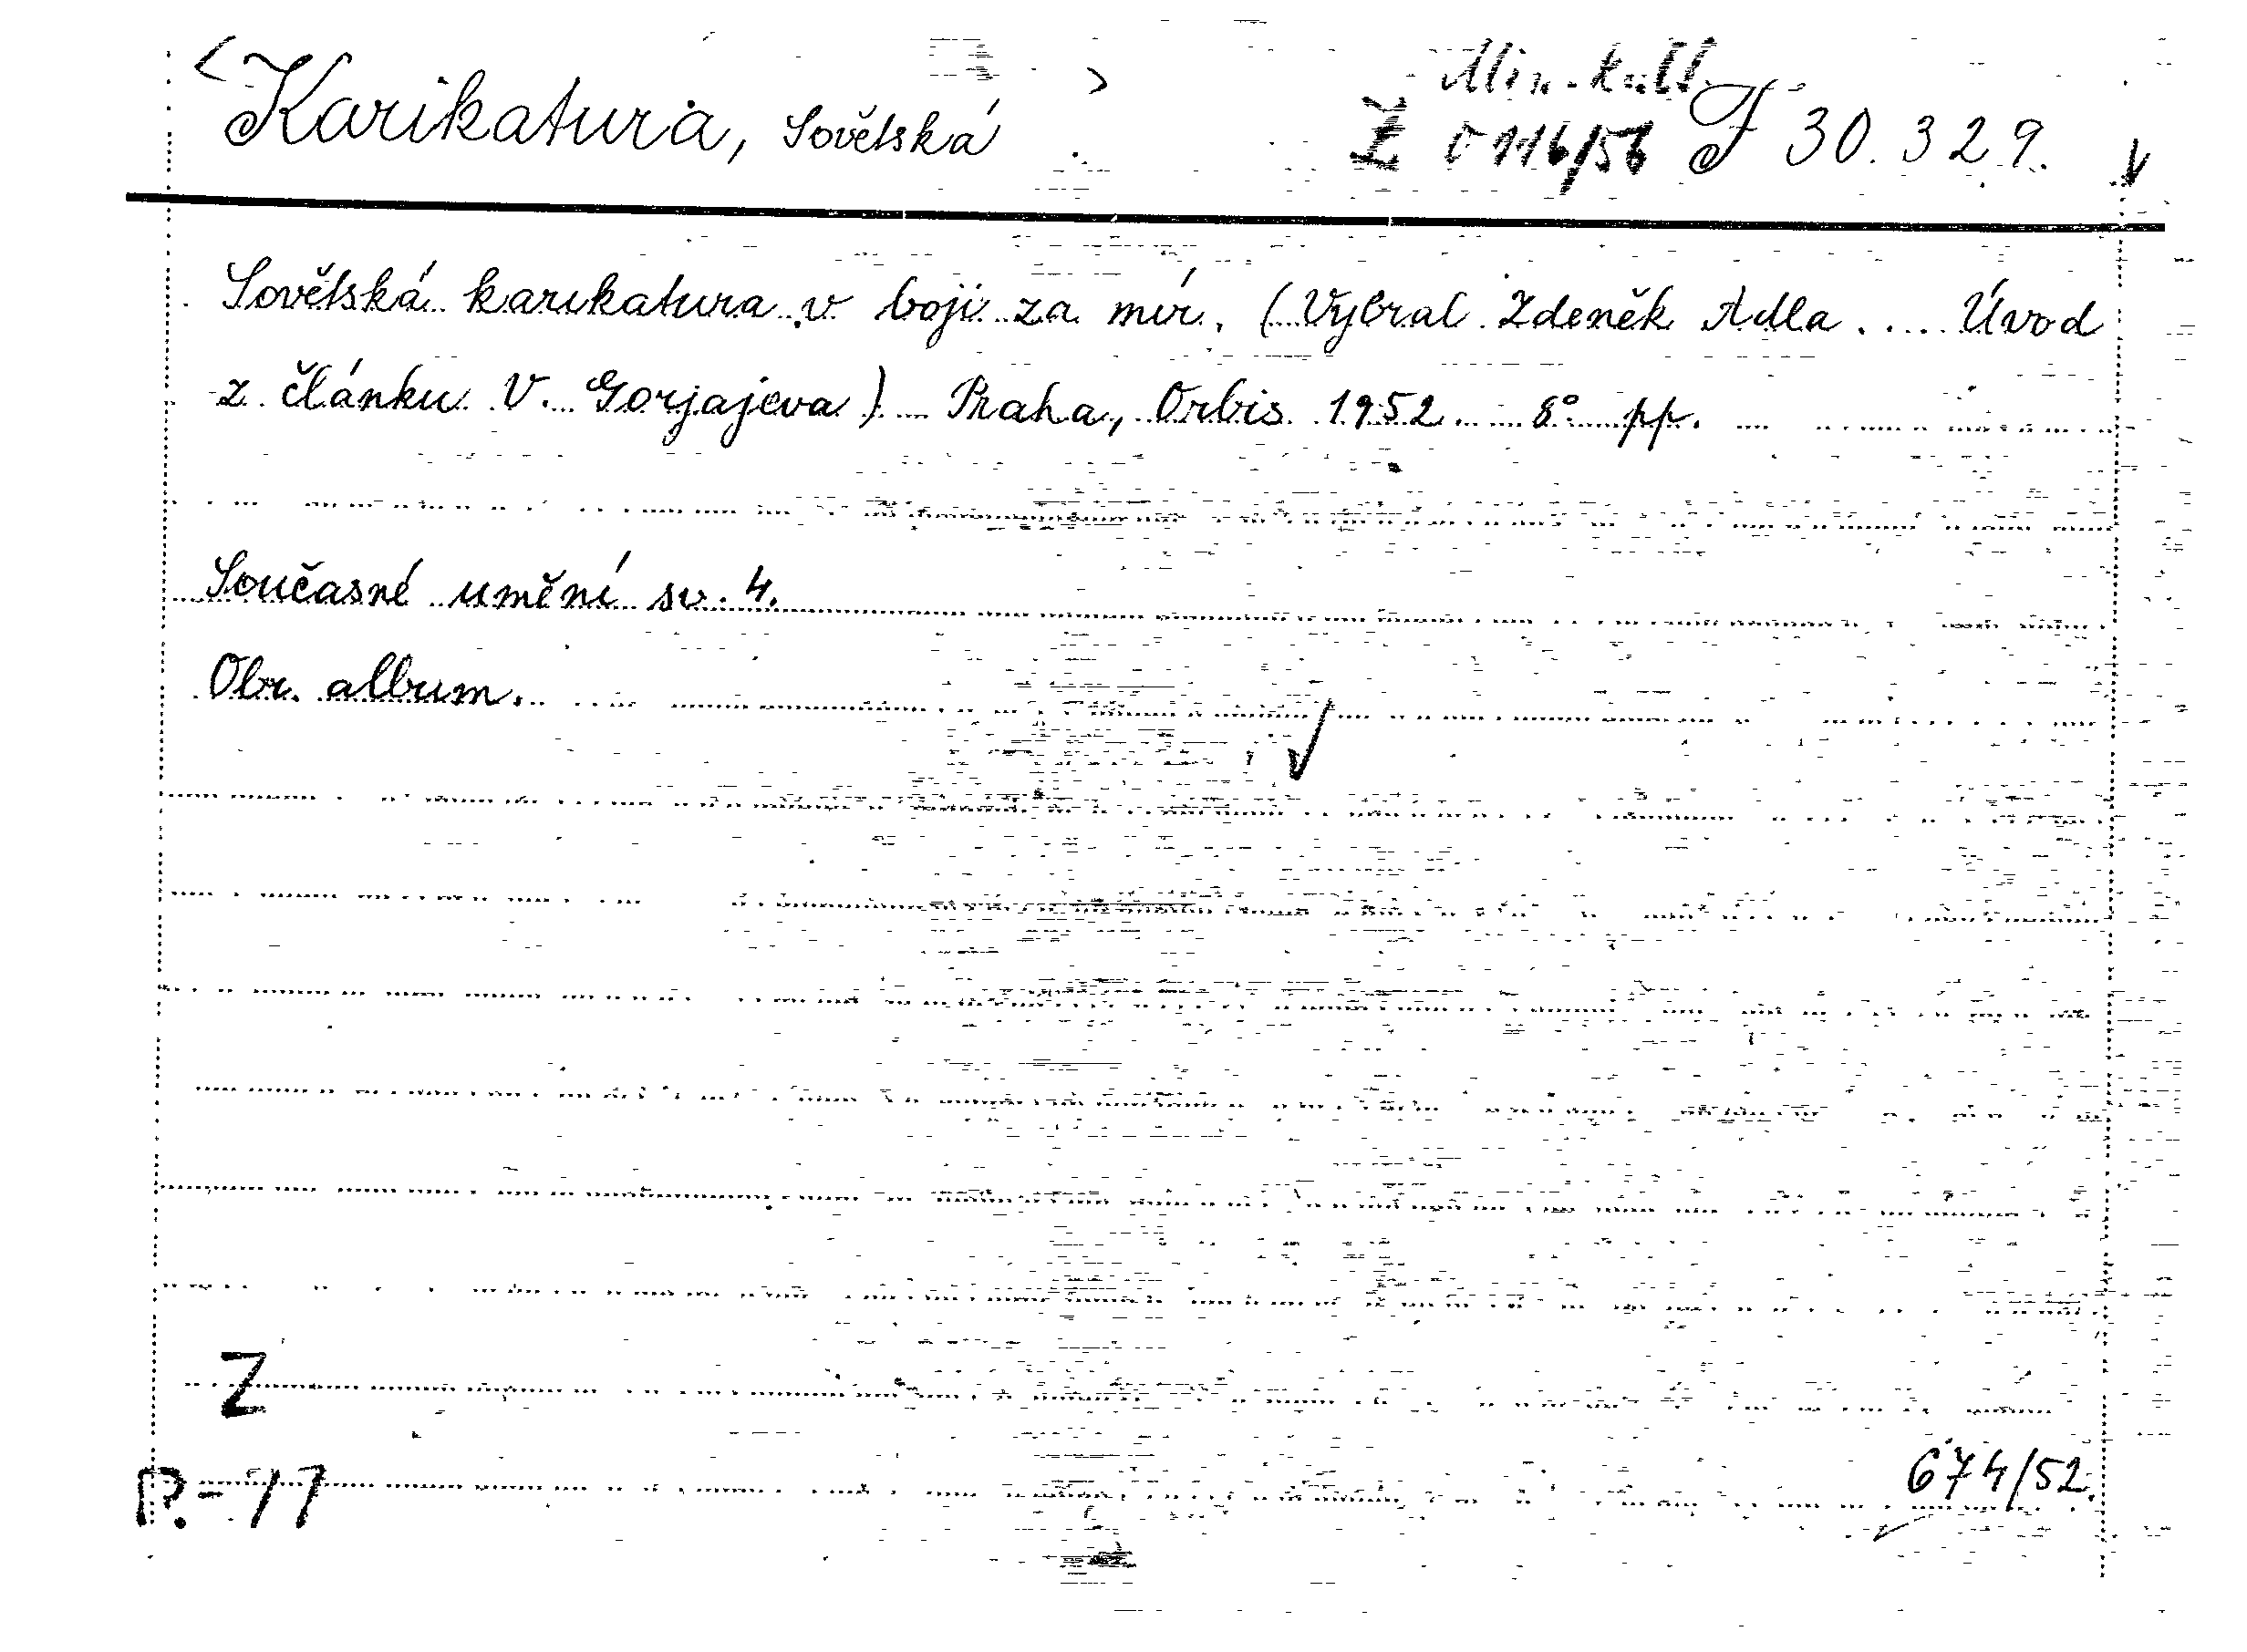 <Karikatura, Sovětská> Min. kult.
Ž 116/56 F 30.329.
Sovětská karikatura v boji za mír. (Vybral Zdeněk Adla .... Úvod
z článku V. Gorjajeva) Praha, Orbis 1952. 8° pp.
Současné umění sv. 4.
Obr. album.
Z
P.-11
674/52.